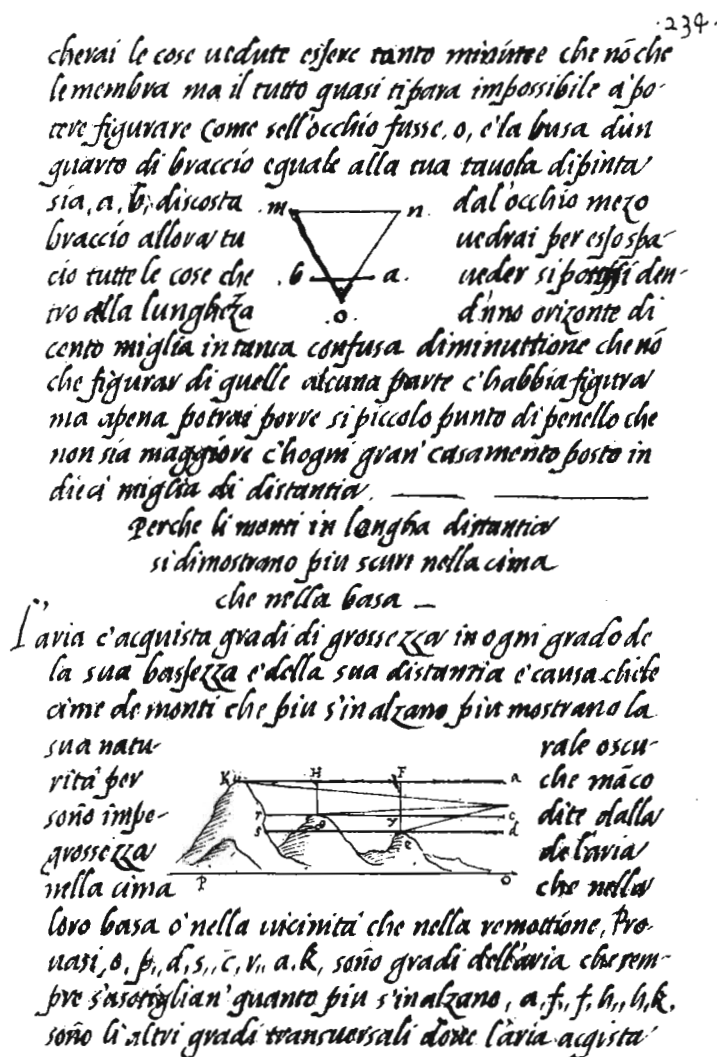 .234.
cherai le cose uedute essere tanto minime che nō che
le membra ma il tutto quasi ti para impossibile à po-
tere figurare Come sell'occhio fusse, o, e la busa d'un
quarto di braccio eguale alla tua tauola dipinta
sia, a, b, discosta .m n. dal'occhio mezo
braccio allora tu uedrai per esso spa-
cio tutte le cose che .b a. ueder si possi den-
tro alla lungheza .o. d'uno orizonte di
cento miglia in tanta confusa diminuttione che nō
che figurar di quelle alcuna parte c'habbia figura
ma apena potrai porre si piccolo punto di penello che
non sia maggiore c'hogni gran' casamento posto in
dieci miglia di distantia.
Perche li monti in longha distantia
si dimostrano piu scuri nella cima
che nella basa
L'aria c'acquista gradi di grossezza in ogni grado de
la sua bassezza e della sua distantia e causa che le
cime de monti che piu s'inalzano piu mostrano la
sua natu- rale oscu-
K H F a
rità per che māco
r c
sonō impe- dite dalla
s g v d
e
grossezza de l'aria
P O
nella cima che nella
loro basa o' nella uicinità che nella remottione, Pro-
uasi, o, p,, d, s,, c, r,, a. k, sonō gradi dell'aria che sem-
pre s'asotiglian' quanto piu s'inalzano, a, f,, f, h,, h, k,
sonō li altri gradi transuersali doue l'aria acqista